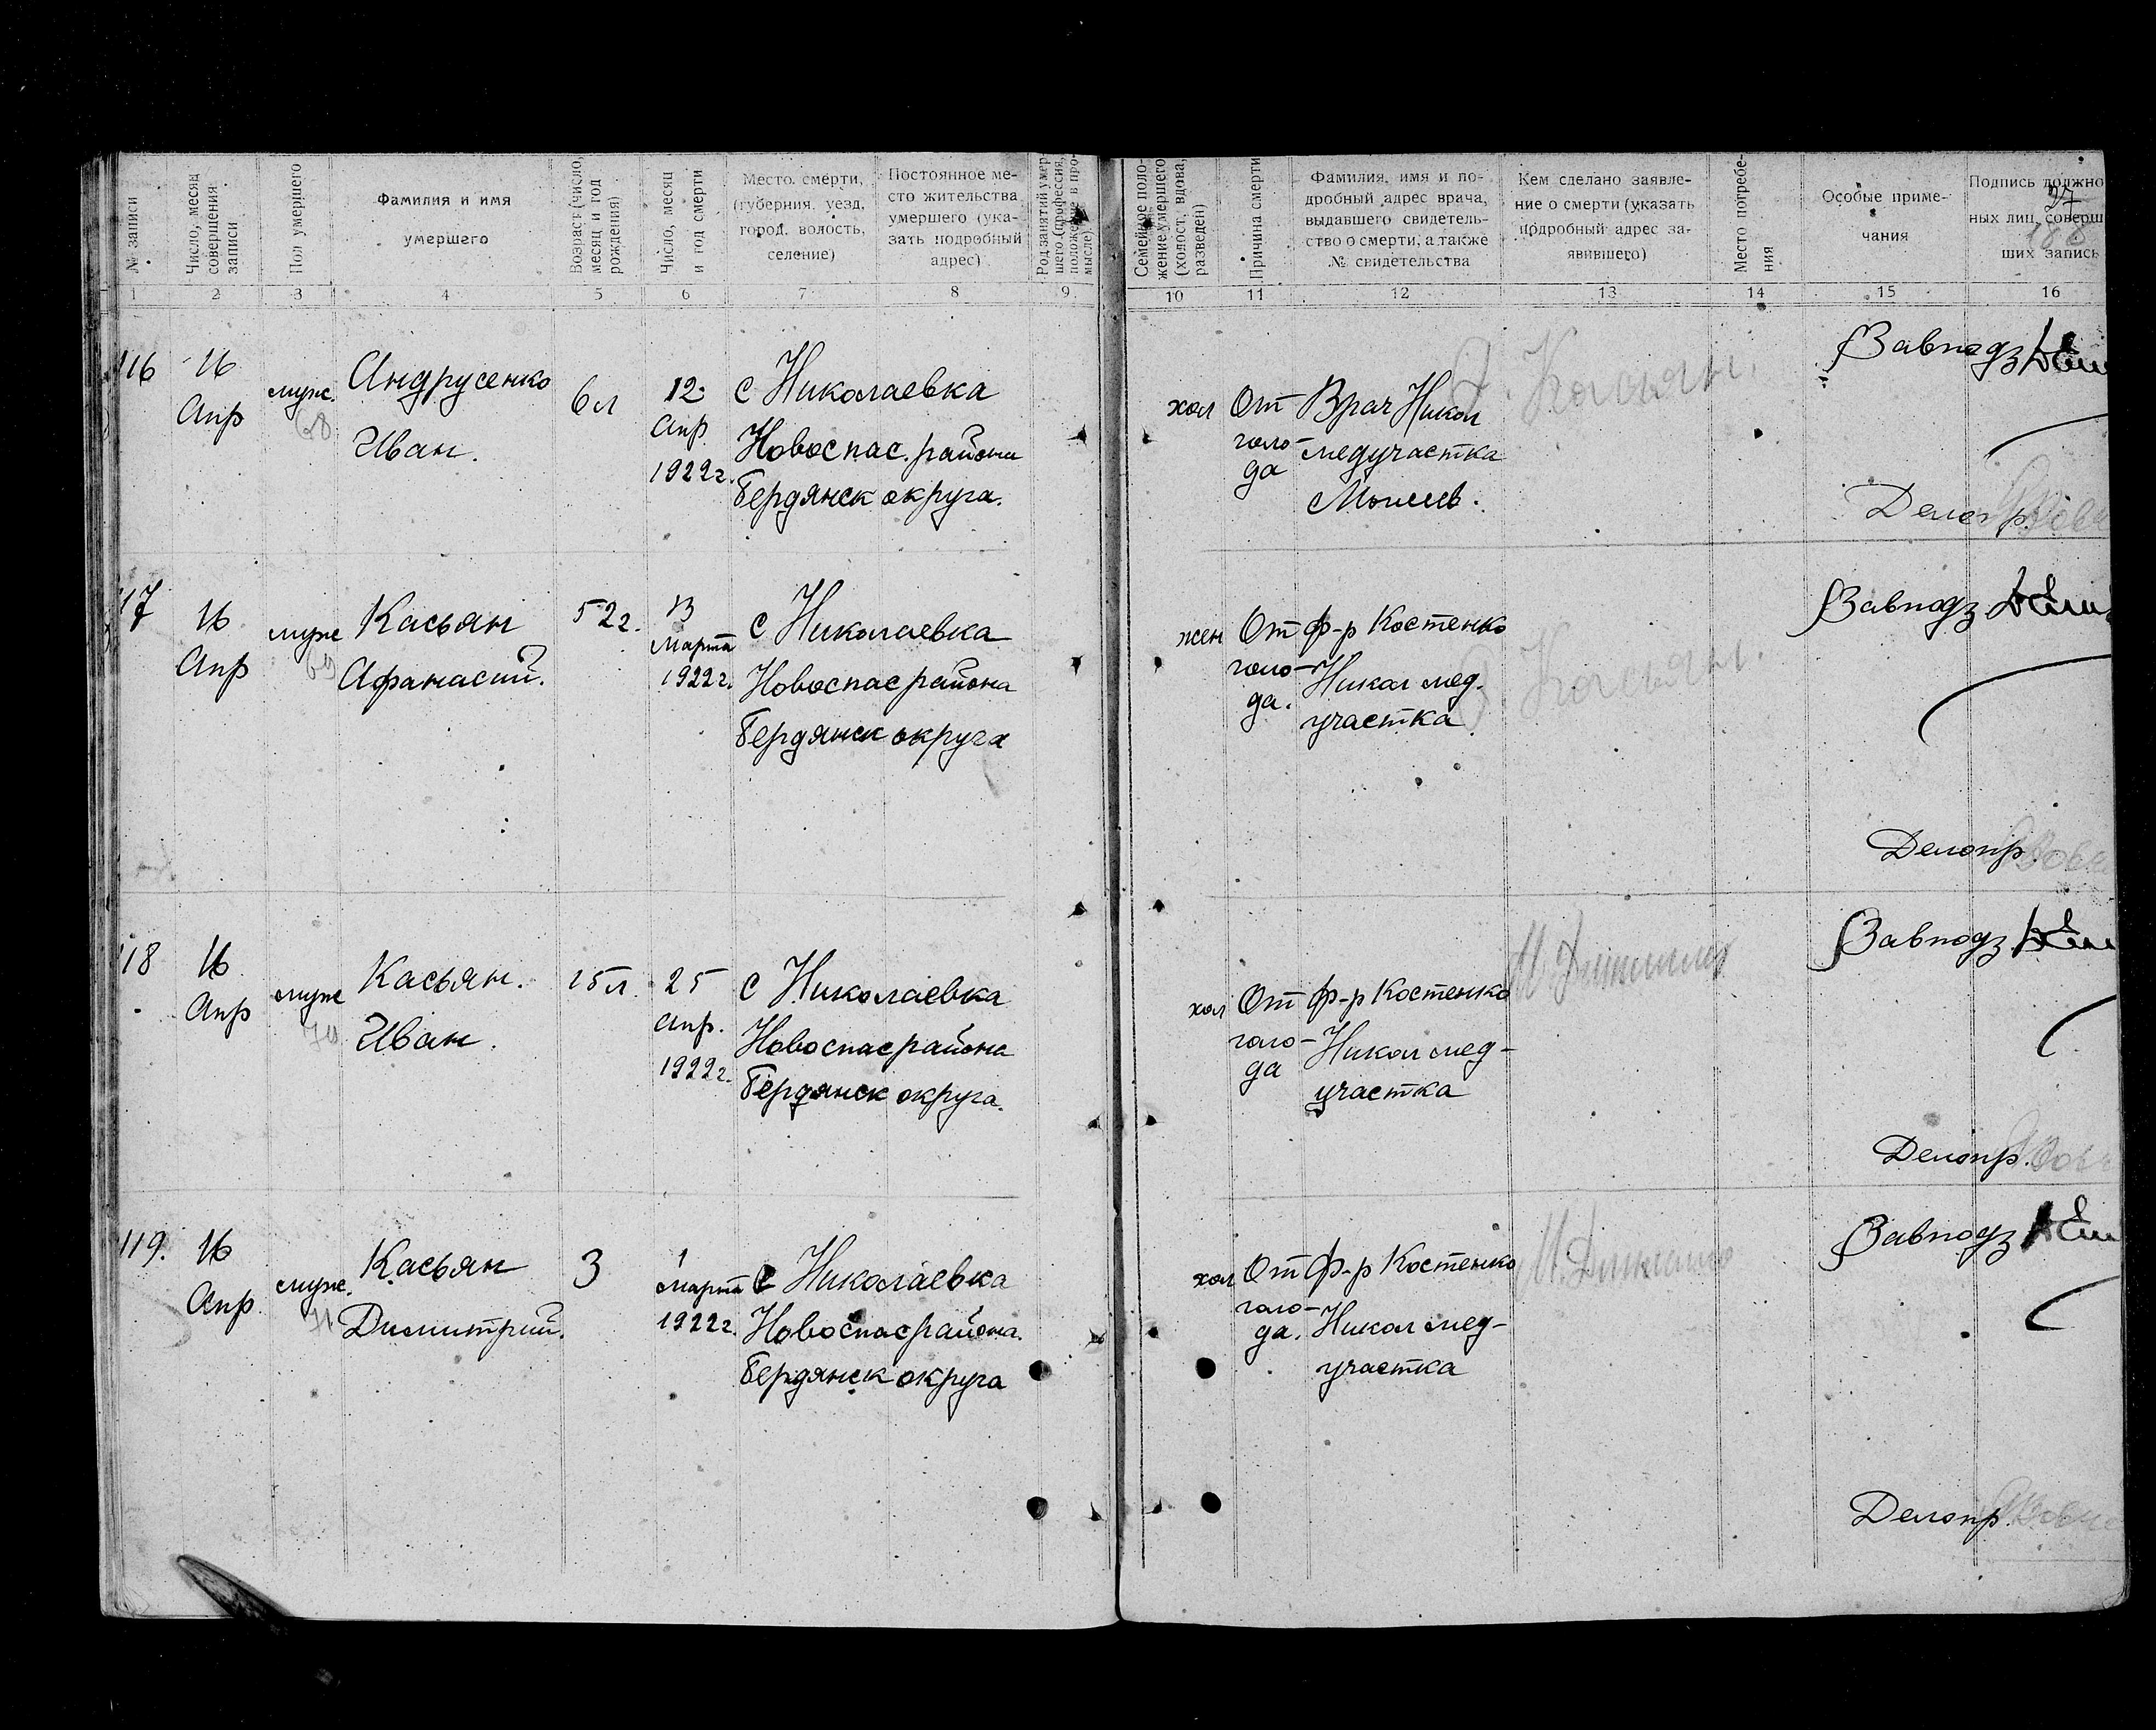 № записи
Число, месяц
совершения
записи
Пол умершего
Фамилия и имя
умершего
Возраст (число,
месяц и год
рождения)
Число, месяц
и год смерти
Место. смерти,
(губерния, уезд,
город, волость,
селение)
Постоянное ме-
сто жительства
умершего (ука-
зать подробный
адрес)
Род занятий умер-
шего (профессия,
положение в про-
мысле)
Семейное поло-
жение умершего
(холост, вдова,
разведен)
Причина смерти
Фамилия, имя и по-
дробный адрес врача,
выдавшего свидетель-
ство о смерти, а также
№ свидетельства
Кем сделано заявле-
ние о смерти (указать
подробный адрес за-
явившего)
Место погребе-
ния
Особые приме-
чания
Подпись должно
ных лиц, соверш
ших запись
27
188
1 2 3 4 5 6 7 8 9 10 11 12 13 14 15 16
116
16
Апр
муж.
68
Андрусенко
Иван.
6л
12
апр
1922г.
с Николаевка
Новоспас. района
Бердянск округа.
хол
От
голо-
да
Врач Никол
медучастка
Касьян.
Завподз
Делопр.
117
16
Апр
муж
69
Касьян
Афанасий.
52г.
13
марта
1922г.
с Николаевка
Новоспас района
Бердянск округа
жен
От
голо-
да.
ф-р Костенко
Никол мед.
участка
Касьян.
Завподз
Делопр.
118
16
Апр
муж
70
Касьян.
Иван.
15л.
25
апр.
1922г.
с Николаевка
Новоспас района
Бердянск округа.
хол
От
голо-
да
ф-р Костенко
Никол мед-
участка
Завподз
Делопр.
119.
16
Апр
муж.
71
Касьян
Димитрий.
3
1
марта
1922г.
с Николаевка
Новоспас района.
Бердянск округа
хол
От
голо-
да.
ф-р Костенко
Никол мед-
участка
Завподз
Делопр.